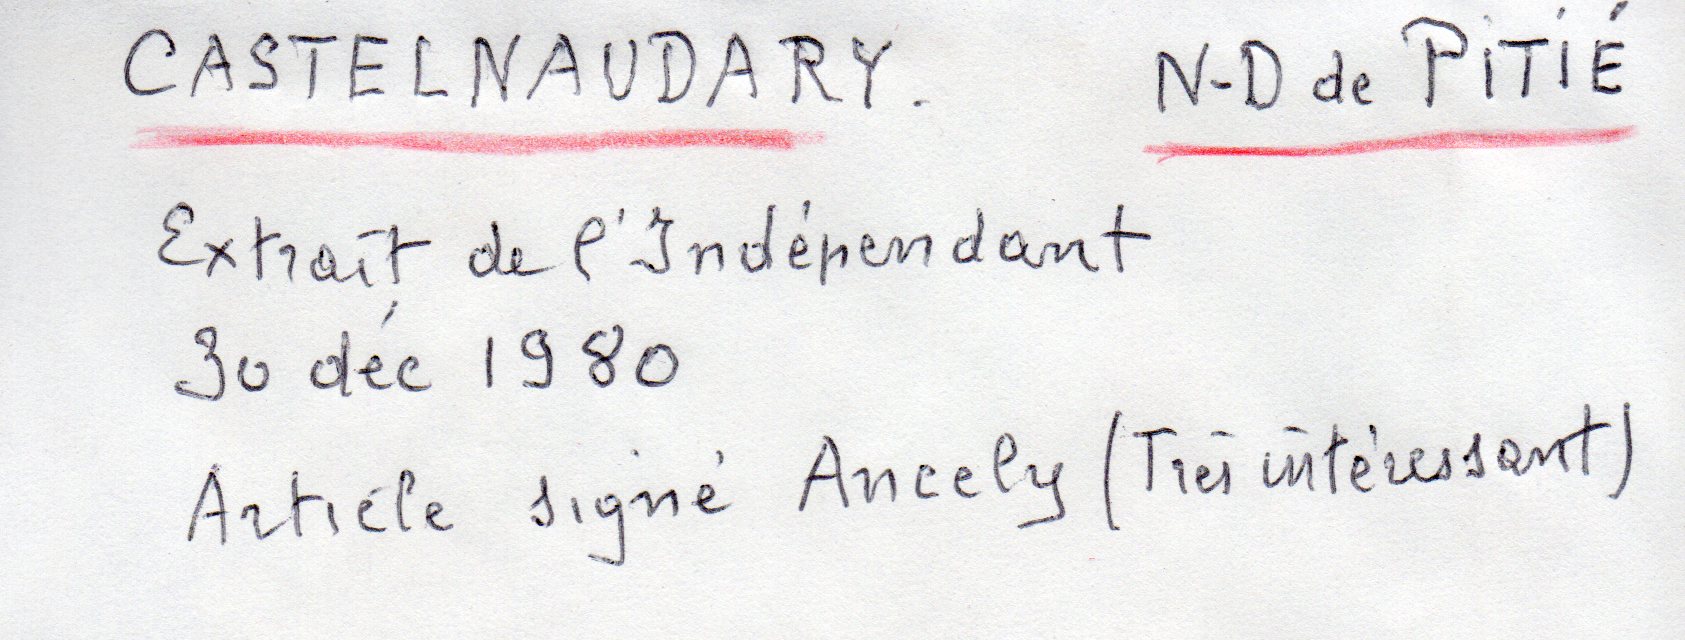 CASTELNAUDARY. N-D de PITIÉ
Extrait de l'Indépendant
30 déc 1980
Article signé Ancely (Très intéressant)